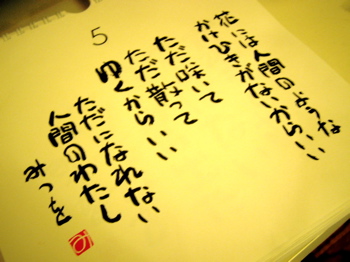 花には人間のような
かけひきがないからいい
ただ咲いて
ただ散って
ゆくからいい
ただになれない
人間のわたし
みつを
5